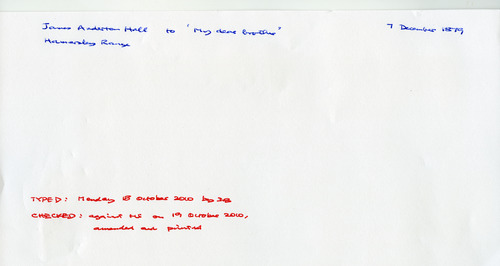 James Anderton Hall to "My dear brother" 7 December 1879
Hamersley Range
TYPED: Monday 18 October 2010 by JB
CHECKED: against MS on 19 October 2010,
amended and printed